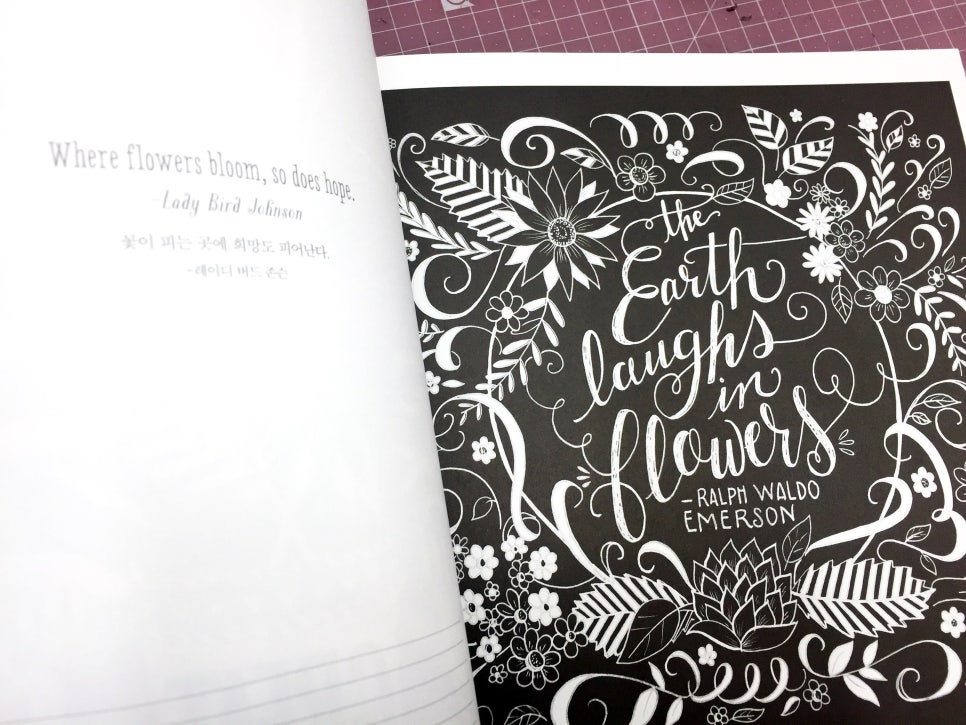 Where flowers bloom, so does hope.
-Lady Bird Johnson
꽃이 피는 곳에 희망도 피어난다.
- 레이디 버드 존슨
the
Earth
laughs
in
flowers
-RALPH WALDO
EMERSON